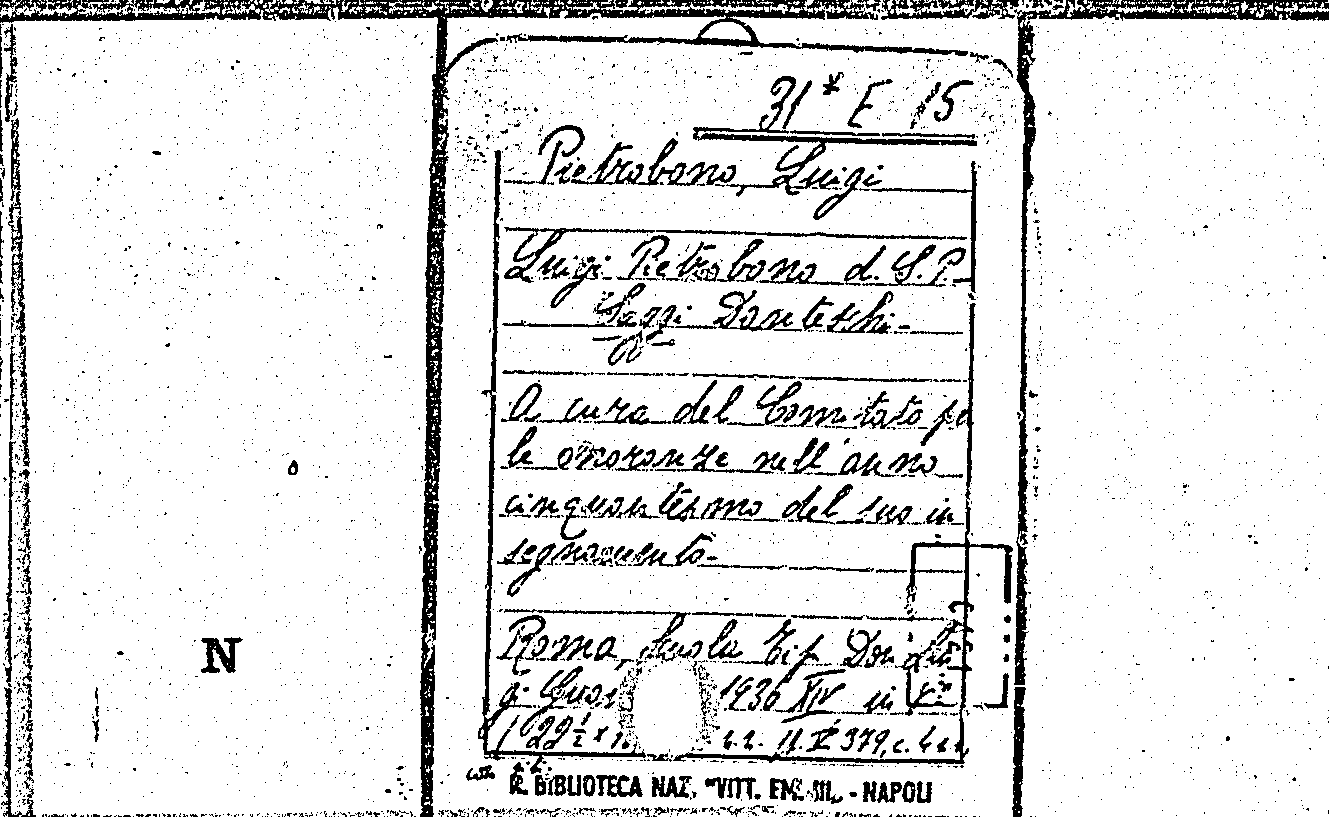 31* E 15
Pietrobono, Luigi
Luigi Pietrobono d. S. P.
Saggi Danteschi-
A cura del Comitato pe
le onoranze nell'anno
cinquantesimo del suo in
segnamento-
Roma, Scuola Tip Don Lui
gi 1936 XIV in
N
R. BIBLIOTECA NAZ. "VITT. EM. III. - NAPOLI